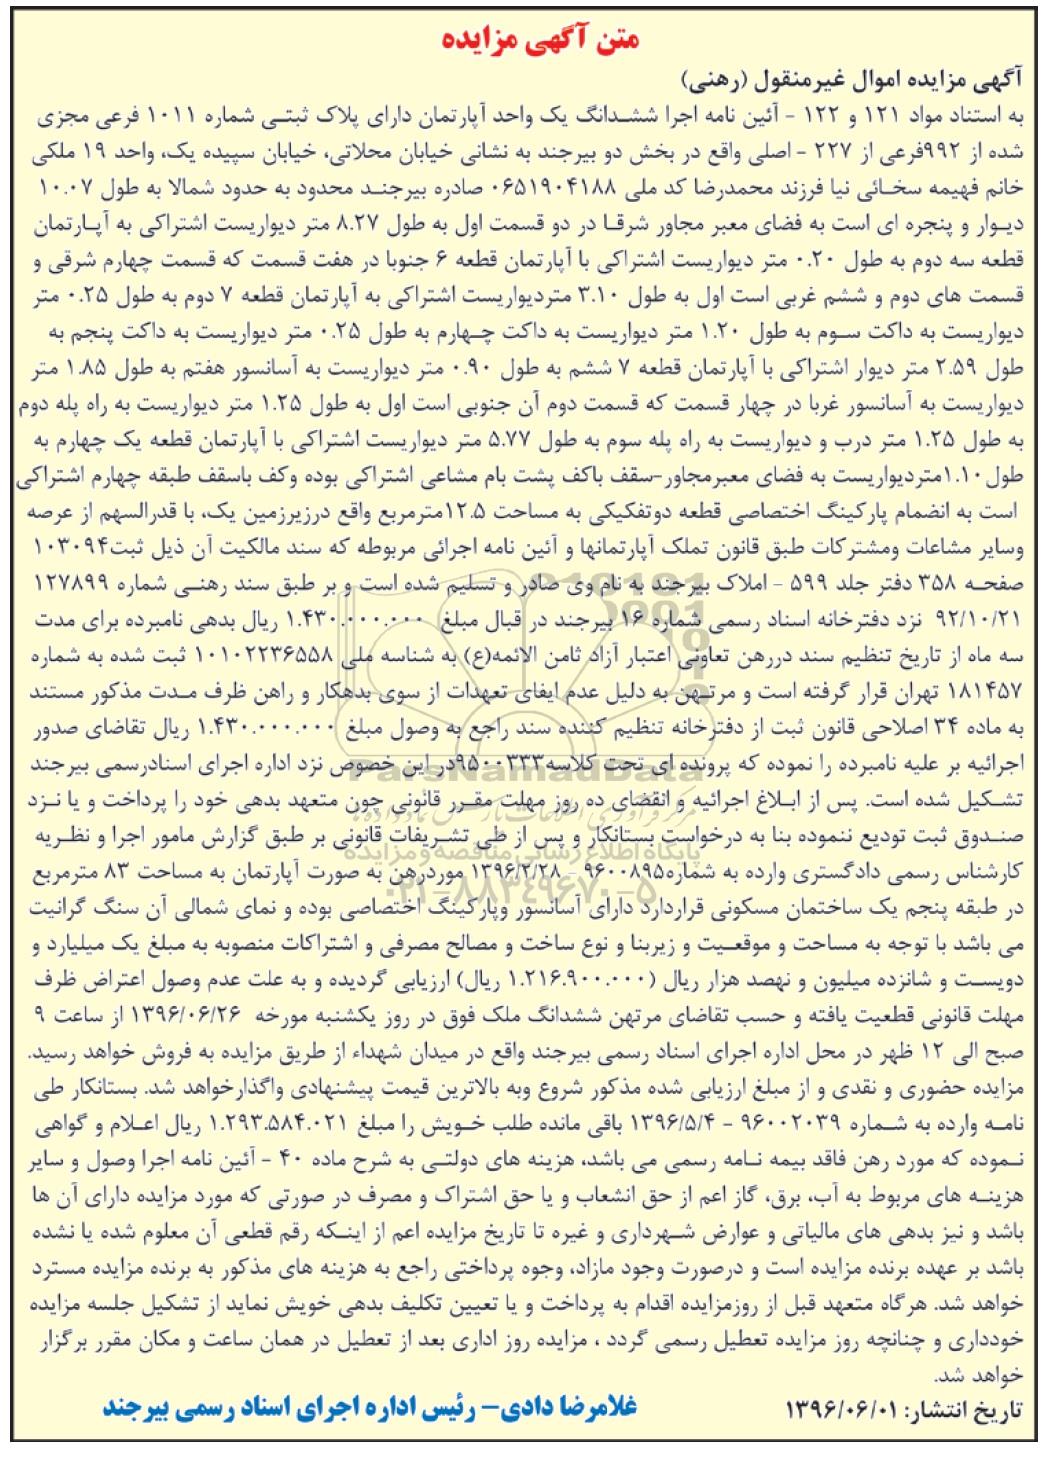 متن آگهی مزایده
آگهی مزایده اموال غیرمنقول (رهنی)
به استناد مواد ۱۲۱ و ۱۲۲ - آئین نامه اجرا ششدانگ یک واحد آپارتمان دارای پلاک ثبتی شماره ۱۰۱۱ فرعی مجزی
شده از ۹۹۲فرعی از ۲۲۷ - اصلی واقع در بخش دو بیرجند به نشانی خیابان محلاتی، خیابان سپیده یک، واحد ۱۹ ملکی
خانم فهیمه سخائی نیا فرزند محمدرضا کد ملی ۰۶۵۱۹۰۴۱۸۸ صادره بیرجند محدود به حدود شمالا به طول ۱۰.۰۷
دیوار و پنجره ای است به فضای معبر مجاور شرقا در دو قسمت اول به طول ۸.۲۷ متر دیواریست اشتراکی به آپارتمان
قطعه سه دوم به طول ۰.۲۰ متر دیواریست اشتراکی با آپارتمان قطعه ۶ جنوبا در هفت قسمت که قسمت چهارم شرقی و
قسمت های دوم و ششم غربی است اول به طول ۳.۱۰ متردیواریست اشتراکی به آپارتمان قطعه ۷ دوم به طول ۰.۲۵ متر
دیواریست به داکت سوم به طول ۱.۲۰ متر دیواریست به داکت چهارم به طول ۰.۲۵ متر دیواریست به داکت پنجم به
طول ۲.۵۹ متر دیوار اشتراکی با آپارتمان قطعه ۷ ششم به طول ۰.۹۰ متر دیواریست به آسانسور هفتم به طول ۱.۸۵ متر
دیواریست به آسانسور غربا در چهار قسمت که قسمت دوم آن جنوبی است اول به طول ۱.۲۵ متر دیواریست به راه پله دوم
به طول ۱.۲۵ متر درب و دیواریست به راه پله سوم به طول ۵.۷۷ متر دیواریست اشتراکی با آپارتمان قطعه یک چهارم به
طول۱.۱۰متردیواریست به فضای معبرمجاور-سقف باکف پشت بام مشاعی اشتراکی بوده وکف باسقف طبقه چهارم اشتراکی
است به انضمام پارکینگ اختصاصی قطعه دوتفکیکی به مساحت ۱۲.۵مترمربع واقع درزیرزمین یک، با قدرالسهم از عرصه
وسایر مشاعات ومشترکات طبق قانون تملک آپارتمانها و آئین نامه اجرائی مربوطه که سند مالکیت آن ذیل ثبت۱۰۳۰۹۴
صفحه ۳۵۸ دفتر جلد ۵۹۹ - املاک بیرجند به نام وی صادر و تسلیم شده است و بر طبق سند رهنی شماره ۱۲۷۸۹۹
۹۲/۱۰/۲۱ نزد دفترخانه اسناد رسمی شماره ۱۶ بیرجند در قبال مبلغ ۱.۴۳۰.۰۰۰.۰۰۰ ریال بدهی نامبرده برای مدت
سه ماه از تاریخ تنظیم سند دررهن تعاونی اعتبار آزاد ثامن الائمه(ع) به شناسه ملی ۱۰۱۰۲۲۳۶۵۵۸ ثبت شده به شماره
۱۸۱۴۵۷ تهران قرار گرفته است و مرتهن به دلیل عدم ایفای تعهدات از سوی بدهکار و راهن ظرف مدت مذکور مستند
به ماده ۳۴ اصلاحی قانون ثبت از دفترخانه تنظیم کننده سند راجع به وصول مبلغ ۱.۴۳۰.۰۰۰.۰۰۰ ریال تقاضای صدور
اجرائیه بر علیه نامبرده را نموده که پرونده ای تحت کلاسه۹۵۰۰۳۳۳در این خصوص نزد اداره اجرای اسنادرسمی بیرجند
تشکیل شده است. پس از ابلاغ اجرائیه و انقضای ده روز مهلت مقرر قانونی چون متعهد بدهی خود را پرداخت و یا نزد
صندوق ثبت تودیع ننموده بنا به درخواست بستانکار و پس از طی تشریفات قانونی بر طبق گزارش مامور اجرا و نظریه
کارشناس رسمی دادگستری وارده به شماره۹۶۰۰۸۹۵ - ۱۳۹۶/۲/۲۸ موردرهن به صورت آپارتمان به مساحت ۸۳ مترمربع
در طبقه پنجم یک ساختمان مسکونی قراردارد دارای آسانسور وپارکینگ اختصاصی بوده و نمای شمالی آن سنگ گرانیت
می باشد با توجه به مساحت و موقعیت و زیربنا و نوع ساخت و مصالح مصرفی و اشتراکات منصوبه به مبلغ یک میلیارد و
دویست و شانزده میلیون و نهصد هزار ریال (۱.۲۱۶.۹۰۰.۰۰۰ ریال) ارزیابی گردیده و به علت عدم وصول اعتراض ظرف
مهلت قانونی قطعیت یافته و حسب تقاضای مرتهن ششدانگ ملک فوق در روز یکشنبه مورخه ۱۳۹۶/۰۶/۲۶ از ساعت ۹
صبح الی ۱۲ ظهر در محل اداره اجرای اسناد رسمی بیرجند واقع در میدان شهداء از طریق مزایده به فروش خواهد رسید.
مزایده حضوری و نقدی و از مبلغ ارزیابی شده مذکور شروع وبه بالاترین قیمت پیشنهادی واگذارخواهد شد. بستانکار طی
نامه وارده به شماره ۹۶۰۰۲۰۳۹ - ۱۳۹۶/۵/۴ باقی مانده طلب خویش را مبلغ ۱.۲۹۳.۵۸۴.۰۲۱ ریال اعلام و گواهی
نموده که مورد رهن فاقد بیمه نامه رسمی می باشد، هزینه های دولتی به شرح ماده ۴۰ - آئین نامه اجرا وصول و سایر
هزینه های مربوط به آب، برق، گاز اعم از حق انشعاب و یا حق اشتراک و مصرف در صورتی که مورد مزایده دارای آن ها
باشد و نیز بدهی های مالیاتی و عوارض شهرداری و غیره تا تاریخ مزایده اعم از اینکه رقم قطعی آن معلوم شده یا نشده
باشد بر عهده برنده مزایده است و درصورت وجود مازاد، وجوه پرداختی راجع به هزینه های مذکور به برنده مزایده مسترد
خواهد شد. هرگاه متعهد قبل از روزمزایده اقدام به پرداخت و یا تعیین تکلیف بدهی خویش نماید از تشکیل جلسه مزایده
خودداری و چنانچه روز مزایده تعطیل رسمی گردد ، مزایده روز اداری بعد از تعطیل در همان ساعت و مکان مقرر برگزار
خواهد شد.
تاریخ انتشار: ۱۳۹۶/۰۶/۰۱
غلامرضا دادی- رئیس اداره اجرای اسناد رسمی بیرجند
ParsNamadData
پایگاه اطلاع رسانی مناقصه و مزایده
۰۲۱-۸۸۳۴۹۶۷۰-۵